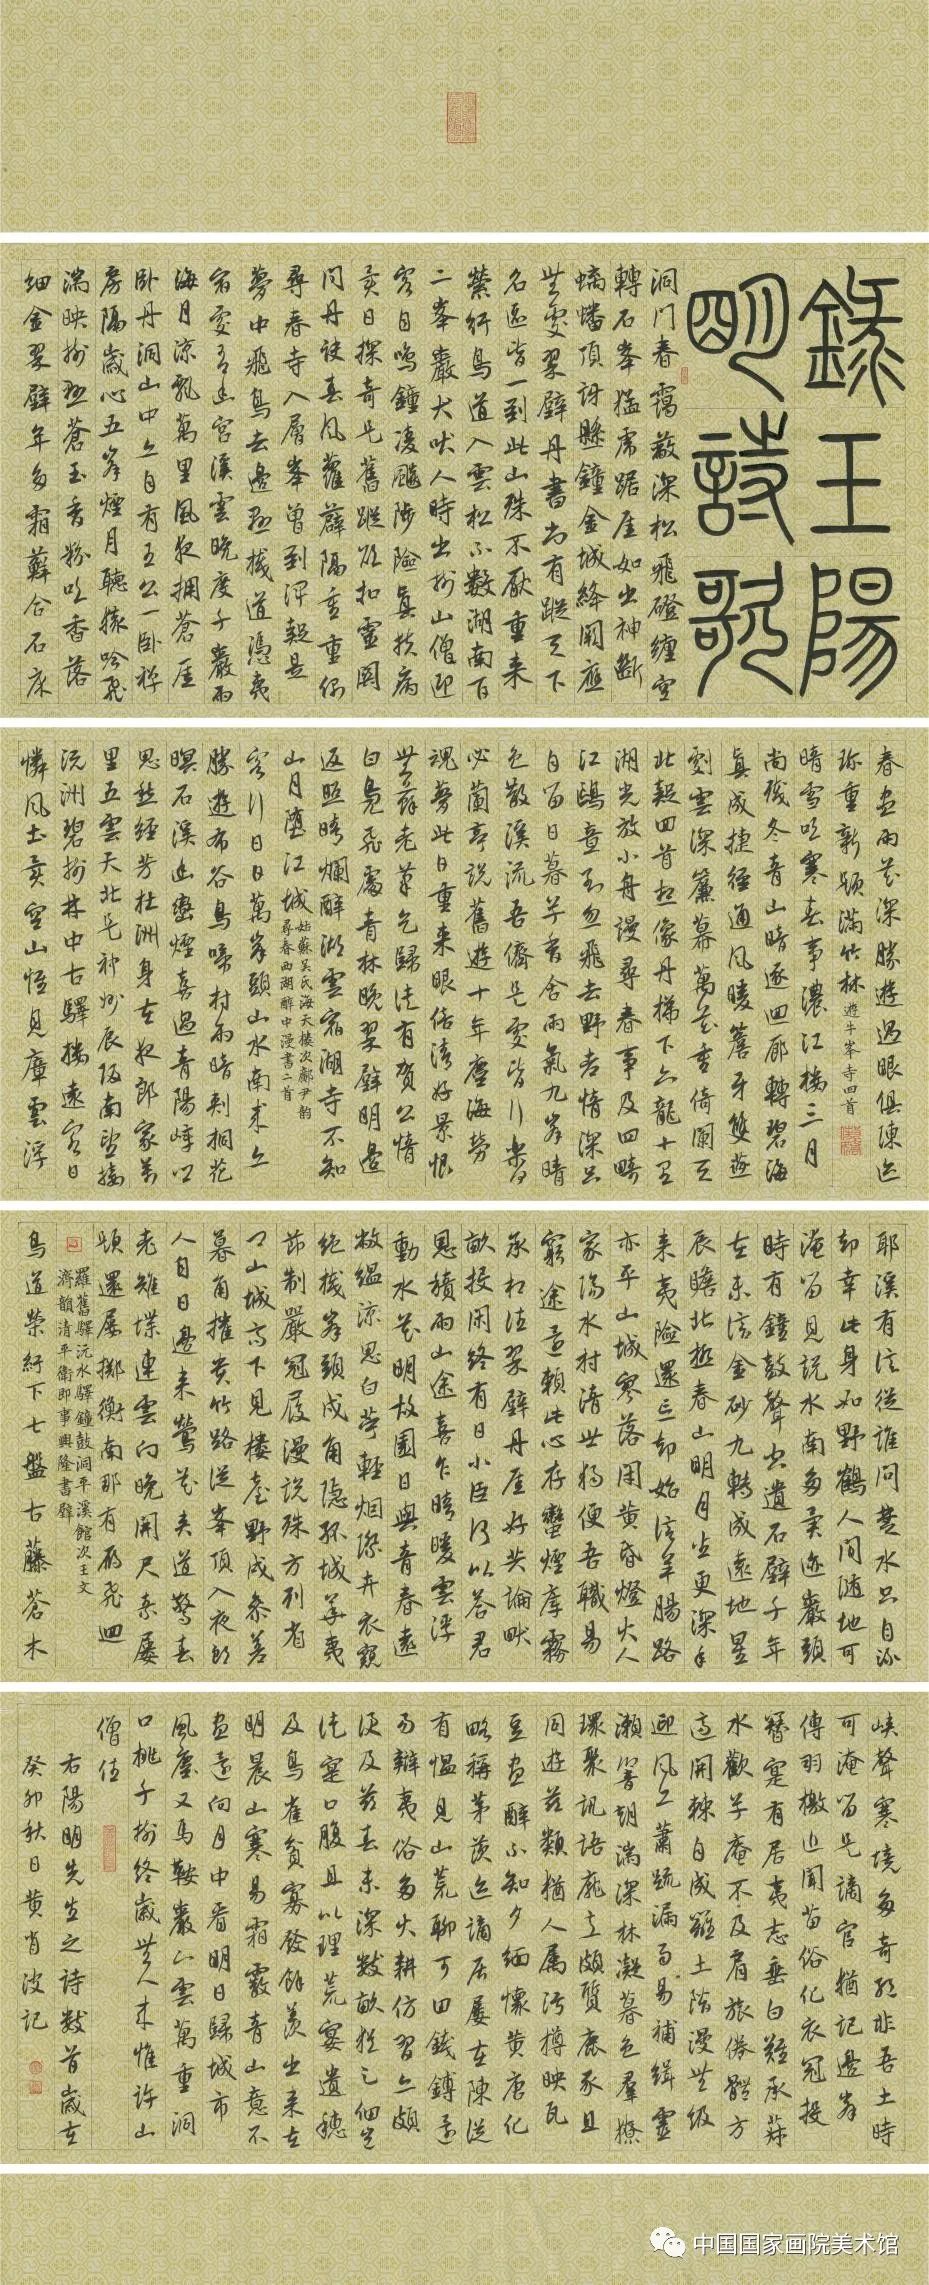 錄王陽
明詩歌
洞門春靄蔽深松飛磴纏空
轉石峯猛虎踞崖如出神斷
螭蟠頂訝懸鐘金城絳闕應
無處翠壁丹書尚有蹤天下
名區皆一到此山殊不厭重來
縈紆鳥道入雲松下數湖南百
二峯巖犬吠人時出樹山僧迎
客自鳴鐘凌飆陟險真扶病
異日探奇是舊蹤欲扣靈關
問丹訣春風蘿薜隔重重偶
尋春寺入層峯曾到渾疑是
夢中飛鳥去邊懸棧道馮夷
宿處有幽宮溪雲晚度千巖雨
海月涼飄萬里風夜擁蒼崖
臥丹洞山中亦自有王公一臥禪
房隔歲心五峯煙月聽猿吟飛
湍映樹懸蒼玉香粉吹香落
細金翠壁年多霜蘚合石床
春盡雨花深勝遊過眼俱陳迹
珍重新題滿竹林 遊牛峯寺四首
晴雪吹寒春事濃江樓三月
尚殘冬青山暗逐回廊轉碧海
真成捷徑通風暖簷牙雙燕
劇雲深簾幕萬花重倚闌天
北疑回首想像丹梯下六龍十里
湖光放小舟謾尋春事及西疇
江鷗意到忽飛去野老情深只
自留日暮草香含雨氣九峯晴
色散溪流吾儕是處皆行樂何
必蘭亭說舊遊十年塵海勞
魂夢此日重來眼倍清好景恨
無蘇老筆乞歸徒有賀公情
白鳧飛處青林晚翠壁明邊
返照晴爛醉湖雲宿湖寺不知
山月墮江城 姑蘇吳氏海天樓次鄺尹韻
尋春西湖醉中漫書二首
客行日日萬峯頭山水南來亦
勝遊布谷鳥啼村雨暗刺桐花
暝石溪幽蠻煙喜過青陽瘴鄉
思愁經芳杜洲身在夜郎家萬
里五雲天北是神州辰陽南望接
沅洲碧樹林中古驛樓遠客日
憐風土異空山惟見瘴雲浮
耶溪有信從誰問楚水只自流
却幸此身如野鶴人間隨地可
淹留見說水南多異迹巖頭
時有鐘鼓聲空遺石壁千年
在未信金砂九轉成遠地星
辰瞻北極春山明月坐更深年
來夷險還忘却始信羊腸路
亦平山城寥落閉黃昏燈火人
家隔水村清世獨便吾職易
窮途還賴此心存蠻煙瘴霧
承相往翠壁丹崖好共論畎
畝投閑終有日小臣何以答君
恩積雨山途喜乍晴暖雲浮
動水花明故園日與青春遠
敝縕涼思白苧輕烟際卉衣窺
絕棧峯頭戍角隱孤城華夷
節制嚴冠履漫說殊方列省
卿山城高下見樓臺野戍參差
暮角摧貴竹路從峯頂入夜郎
人自日邊來鶯花夾道驚春
老雉堞連雲向晚開尺素屢
題還屢擲衡南那有雁飛回
羅舊驛沅水驛鐘鼓洞平溪館次王文
濟韻清平衛即事興隆書壁
鳥道縈紆下七盤古藤蒼木
峽聲寒境多奇絕非吾土時
可淹留是謫官猶記邊峯
傳羽檄近聞苗俗化衣冠投
簪實有居夷志垂白難承菽
水歡草庵不及肩旅倦體方
適開棘自成籬土階漫無級
迎風亦蕭疏漏雨易補緝靈
瀨響朝湍深林凝暮色羣獠
環聚訊語龐意頗質鹿豕且
同遊茲類猶人屬污樽映瓦
豆盡醉不知夕緬懷黃唐化
略稱茅茨迹謫居屢在陳從
有慍見山荒聊可田錢鎛還
易辦夷俗多火耕仿習亦頗
便及茲春未深數畝猶足佃豈
徒實口腹且以理荒宴遺穗
及鳥雀貧寡發餘羨出耒在
明晨山寒易霜霰青山意不
盡還向月中看明日歸城市
風塵又馬鞍巖下雲萬重洞
口桃千樹終歲無人來惟許山
僧住
右陽明先生之詩數首歲在
癸卯秋日黃肖波記
中国国家画院美术馆